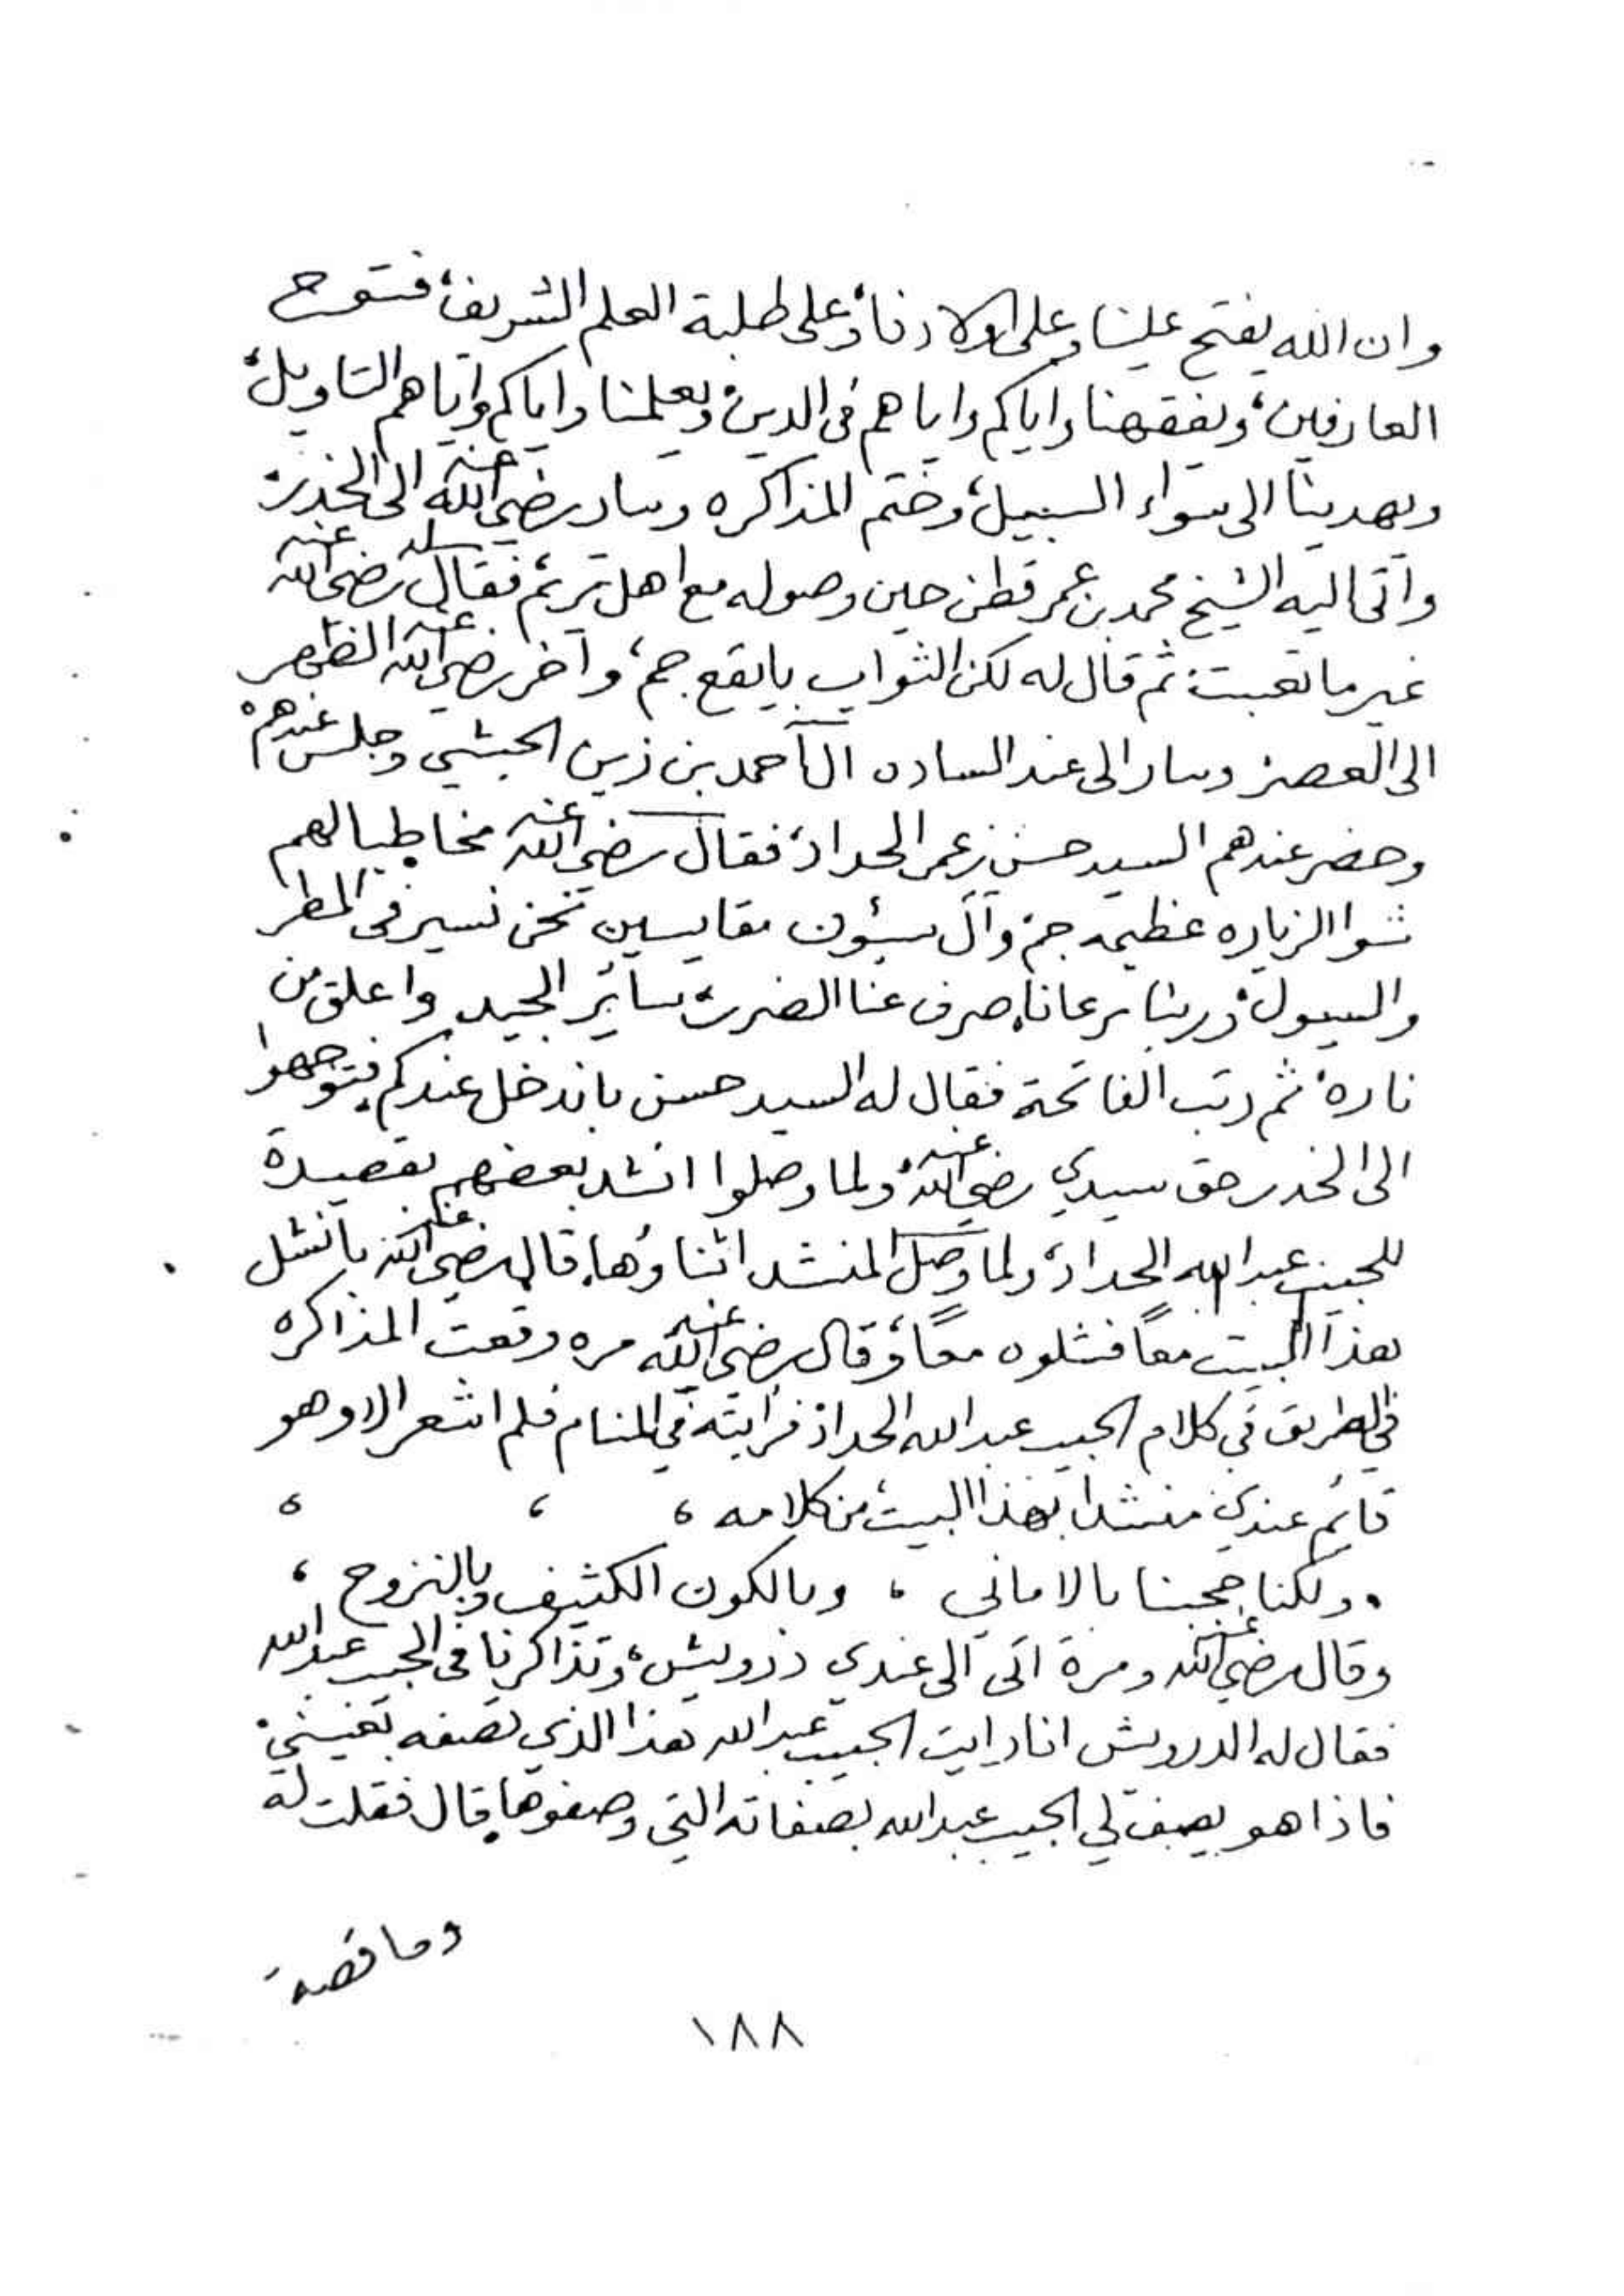 وان الله يفتح علينا وعلى اولادنا، وعلى طلبة العلم الشريف، فتوح
العارفين، ويفقهنا واياكم واياهم في الدين، ويعلمنا واياكم واياهم التاويل،
ويهدينا الى سواء السبيل، وختم المذاكره وسار رضي الله عنه الى الخدر،
واتى اليه الشيخ محمد بن عمر قطن حين وصوله مع اهل تريم، فقال له رضي الله عنه
غير ما تعبت، ثم قال له لكن الثواب بايقع جم، وآخر رضي الله عنه الظهر
الى العصر، وسار الى عند الساده آل احمد بن زين الحبشي وجلس عندهم،
وحضر عندهم السيد حسن بن عمر الحداد، فقال رضي الله عنه مخاطبا لهم
شوا الزياره عظيمه جم، وآل سيؤن مقايسين نحن نسير في المطر
والسيول، وربنا يرعانا، صرف عنا الضر، ساير الجيد واعلق من
ناره، ثم رتب الفاتحة فقال له السيد حسن باندخل عندكم، فتوجهوا
الى الخدر حق سيدي رضي الله عنه، ولما وصلوا انشد بعضهم بقصيدة
للحبيب عبدالله الحداد، ولما وصل المنشد اثناؤها، قال رضي الله عنه بانشل
هذا البيت معاً فشلوه معاً، وقال رضي الله عنه مره وقعت المذاكره
في الطريق في كلام الحبيب عبدالله الحداد، فرايته في المنام فلم اشعر الا وهو
قائم عندي منشدا بهذا البيت، من كلامه ، ، ،
ولكنا حجبنا بالاماني ، وبالكون الكثيف وبالنزوح ،
وقال رضي الله عنه ومرة اتى الى عندي درويش، وتذاكرنا في الحبيب عبدالله
فقال له الدرويش انا رايت الحبيب عبدالله هذا الذي تصفه بعيني،
فاذا هو يصف لي الحبيب عبدالله بصفاته التي وصفوها، قال فقلت له
وما قصة
١٨٨